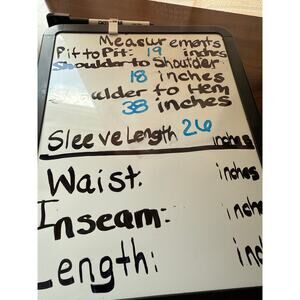 Measurements
Pit to Pit: 19 inches
Shoulder to Shoulder
18 inches
oulder to Hem
38 inches
Sleeve Length 26 inches
Waist: inches
Inseam: inche
Length: inc